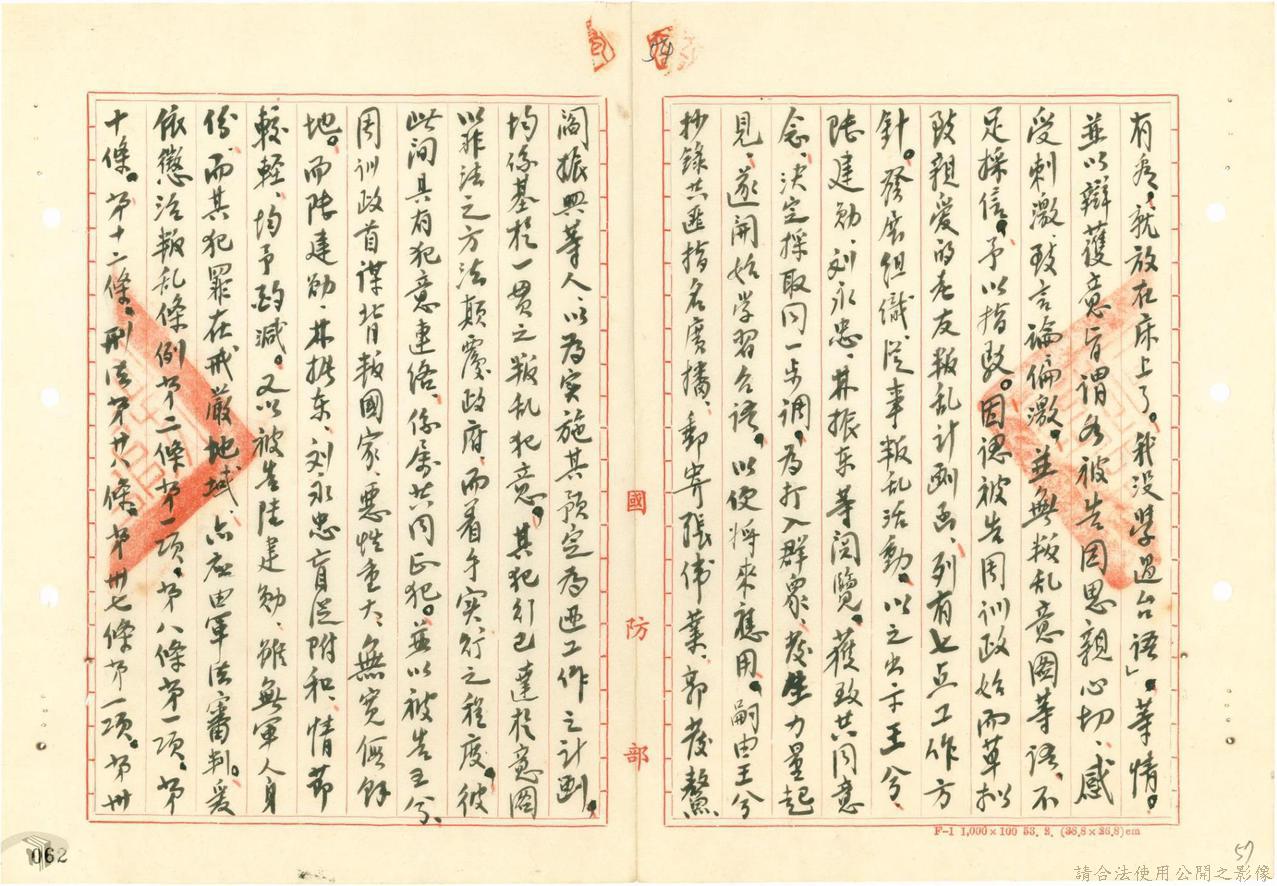 有看，就放在床上了。我没學過台语」。等情。
並以辯護意旨謂各被告因思親心切、感
受刺激，致言論偏激。並無叛乱意圖等语，不
足採信。予以指駁。因認被告周训政始而草拟
致親爱的老友叛乱计劃函，列有七点工作方
针。發展组織，從事叛乱活動。以之出示王兮、
陸建勋、刘永忠、林振东等阅覽，獲致共同意
念，决定採取同一步调，为打入群眾、發生力量起
見，遂開始学習台语。以便将來應用。嗣由王兮
抄錄共匪指名廣播、郵寄張伟業、郭發鰲
閻振興等人，以为实施其预定為匪工作之计劃。
均係基於一贯之叛乱犯意。其犯行已達於意图
以非法之方法颠覆政府，而着手实行之程度。彼
此间具有犯意連络，係属共同正犯。並以被告王兮、
周训政首謀背叛國家，惡性重大，無寬假餘
地。而陸建勋、林振东、刘永忠盲從附和，情節
較輕，均予酌減。又以被告陸建勋，雖無軍人身
份，而其犯罪在戒嚴地域，亦应由軍法審判。爰
依懲治叛乱條例第二條第一项。第八條第一项、第
十條。第十二條，刑法第廿八條。第卅七條第一项。第卅
國防部
F-1 1,000×100 53. 2. (36.8×26.8)cm
062
57
請合法使用公開之影像